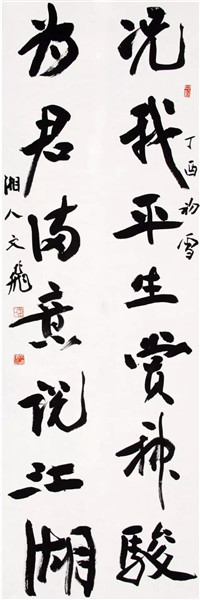 况我平生赏神骏
丁酉初雪
为君满意说江湖
湘人文飞